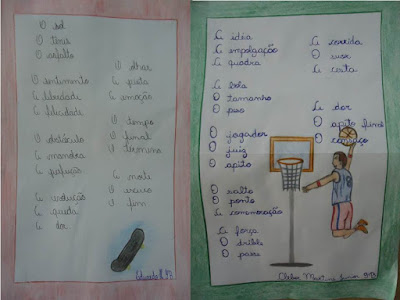 O sol
O tênis
O asfalto
O sentimento
A liberdade
A felicidade
O obstáculo
A manobra
A perfeição
A evolução
A queda
A dor
O olhar
A pista
A emoção
O tempo
O final
O término
A noite
O escuro
O fim
Eduardo
A idéia
A empolgação
A quadra
A bola
O tamanho
O peso
O jogador
O juiz
O apito
O salto
O ponto
A comemoração
A força
O drible
O passe
A corrida
O suor
A cesta
A dor
O apito final
O cansaço
Cleber